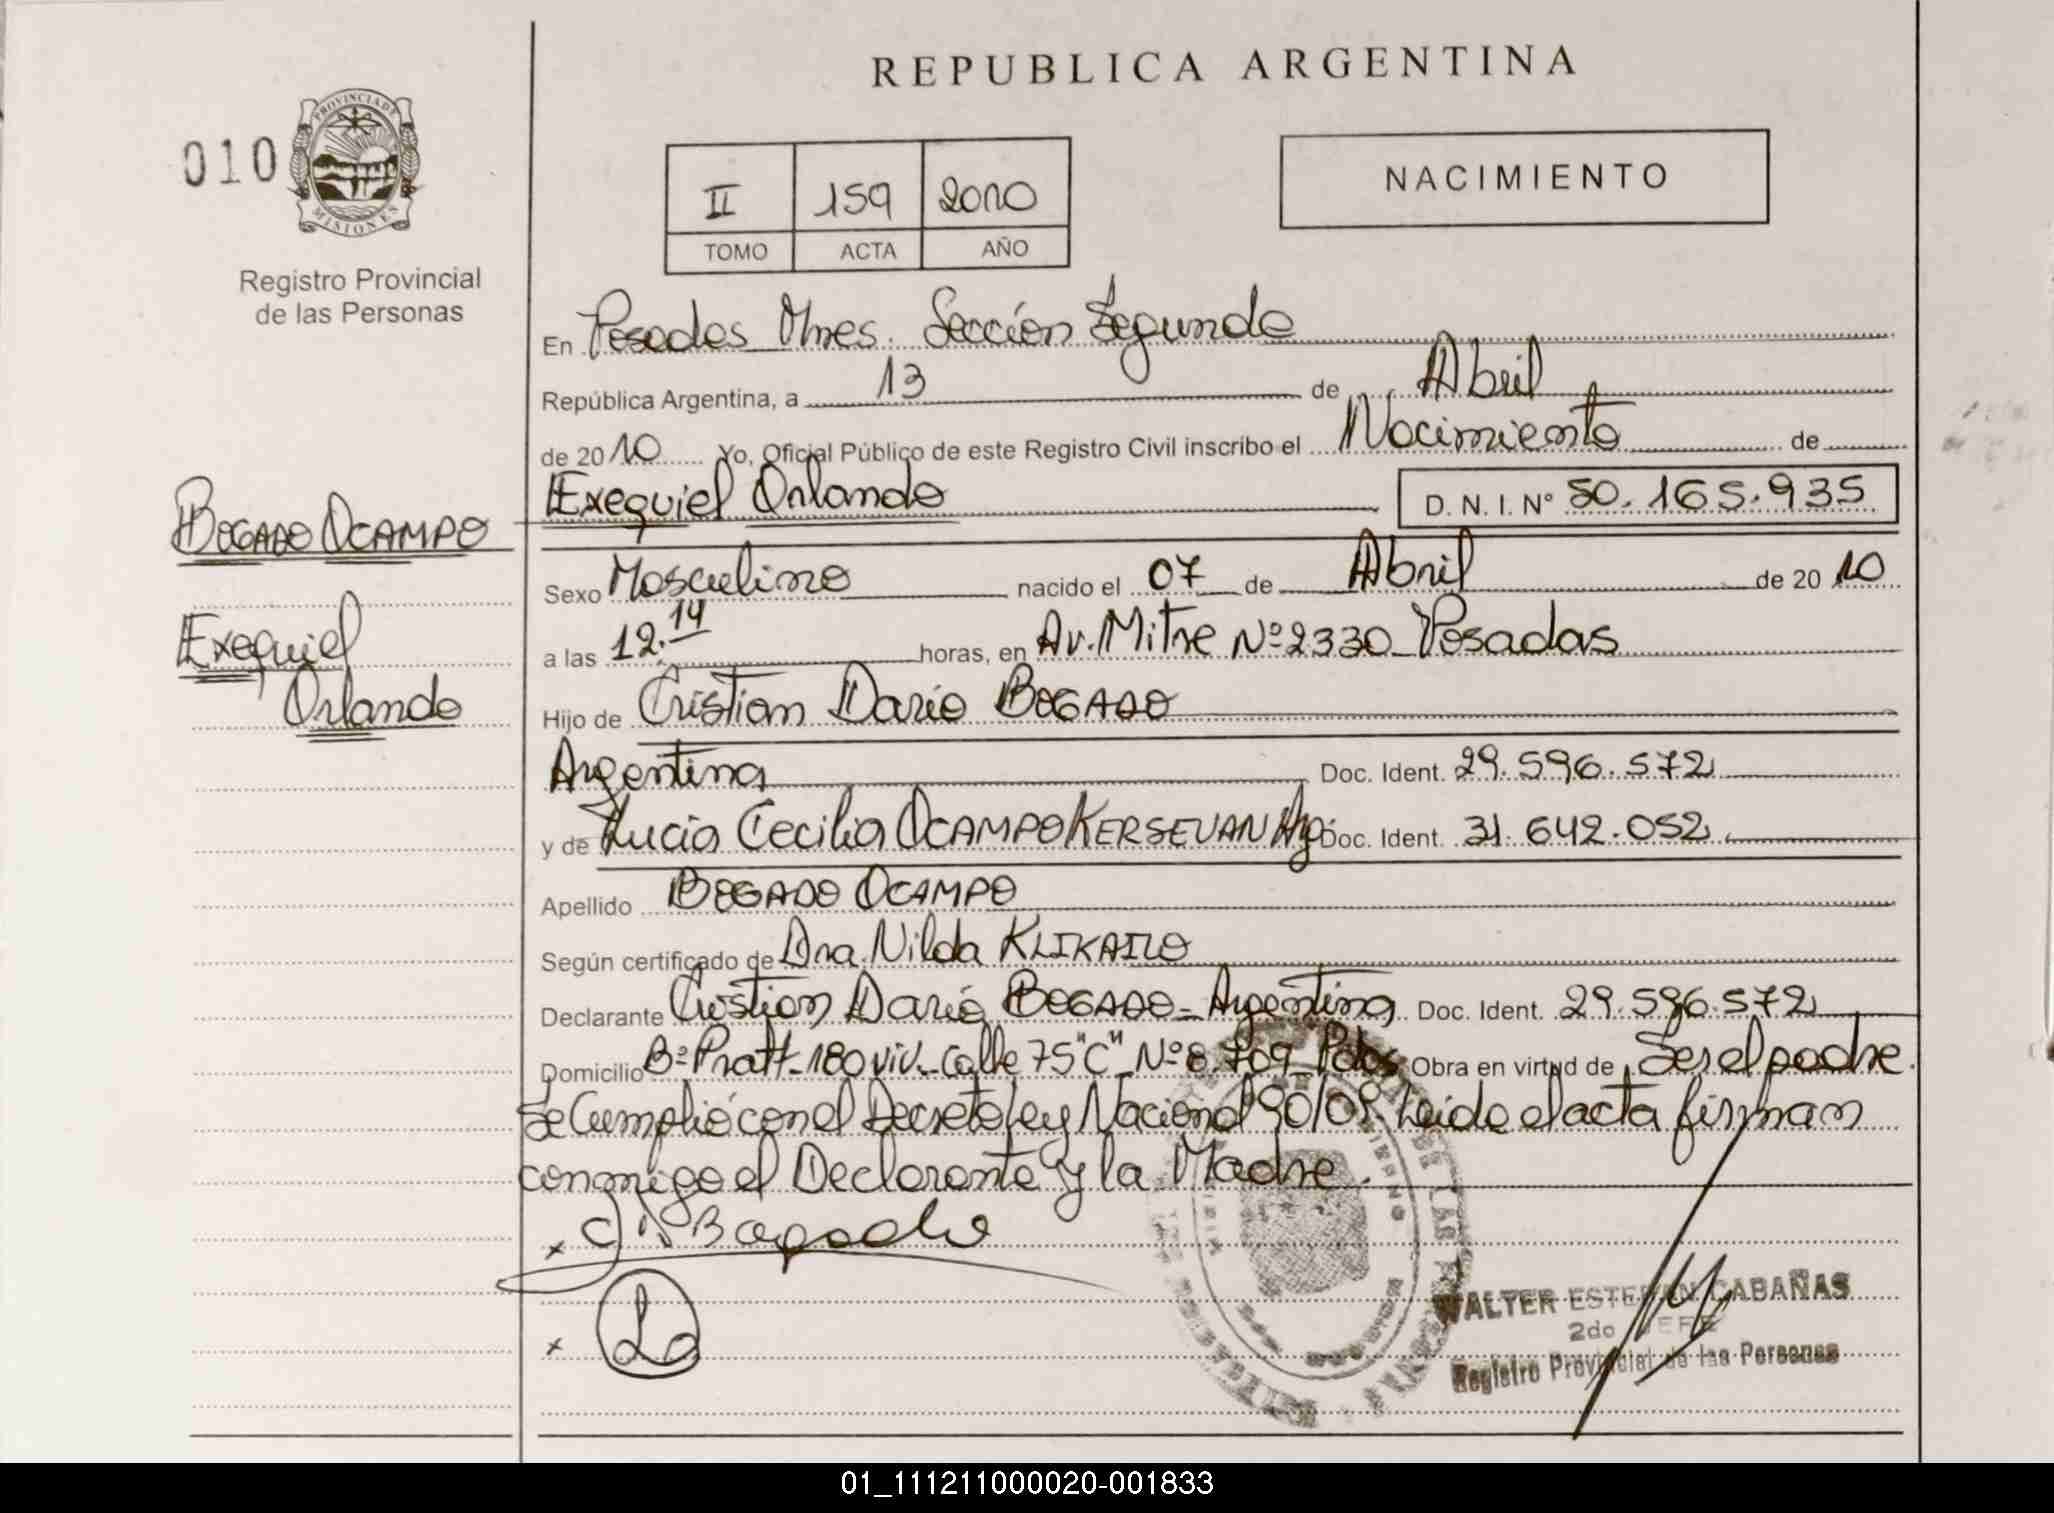 REPUBLICA ARGENTINA
010
PROVINCIA DE
MISIONES
Registro Provincial
de las Personas
II 159 2010
TOMO ACTA AÑO
NACIMIENTO
En Posadas Mnes. Sección Segunda
República Argentina, a 13 de Abril
de 2010 Yo, Oficial Público de este Registro Civil inscribo el Nacimiento de
Exequiel Orlando D. N. I. Nº 50.165.935
BOGADO OCAMPO
Exequiel
Orlando
Sexo Masculino nacido el 07 de Abril de 2010
a las 12:14 horas, en Av. Mitre Nº 2330 Posadas
Hijo de Cristian Dario BOGADO
Argentina Doc. Ident. 29.596.572
y de Lucia Cecilia OCAMPO KERSEVAN Arg. Doc. Ident. 31.642.052
Apellido BOGADO OCAMPO
Según certificado de Dra. Nilda
Declarante Cristian Dario BOGADO - Argentina Doc. Ident. 29.596.572
Domicilio Bº Pratt - 180 viv. - Calle 75 "C" Nº 8.709 Pdas Obra en virtud de Ser el padre
Se Cumplió con el Decreto Ley Nacional 90/09. Leida el acta firman
conmigo el Declarante y la Madre.
x C. D. Bogado
x
WALTER ESTEBAN CABAÑAS
2do JEFE
Registro Provincial de las Personas
01_111211000020-001833